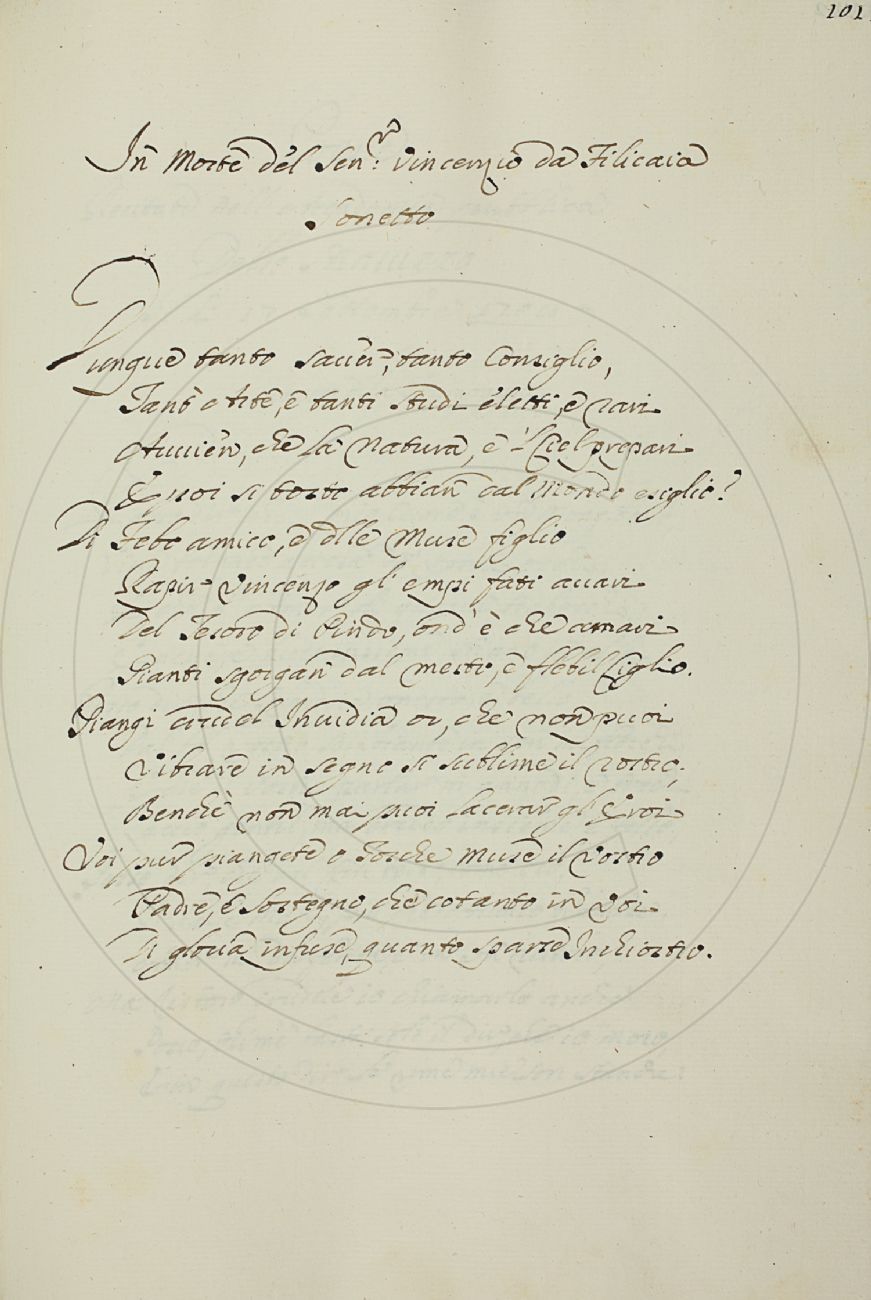 101
In Morte del Sen.re Vincenzio da Filicaia
Sonetto
Dunque tanto saver, tanto Consiglio,
Tant'Arte, e tanti studi eletti, e rari
Avvien, che la Natura, e il Ciel prepari
E noi sì tosto abbian dal Mondo esiglio?
Di Febo amico, e delle Muse figlio
Rapir Vincenzo gl'empi fati avari
Del Tesoro di Pindo, ond'è che amari
Pianti sgorgan dal mesto, e flebil Ciglio.
Piangi crudel Invidia or, che non puoi
Vibrare in segno sì sublime il rostro,
Benchè non mai puoi lacerar gl'Eroi
Voi pur piangete o Tosche Muse il vostro
Padre, e sostegno, che cotanto in Voi
Di gloria infuse, quanto sparse Inchiostro.